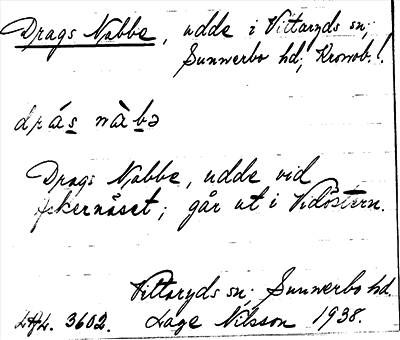 Drags Nabbe, udde i Vittaryds sn;
Sunnerbo hd; Kronob. l.
drás nàbə
Drags Nabbe, udde vid
Åkernäset; går ut i Vidöstern.
Vittaryds sn; Sunnerbo hd.
3602. Lage Nilsson 1938.